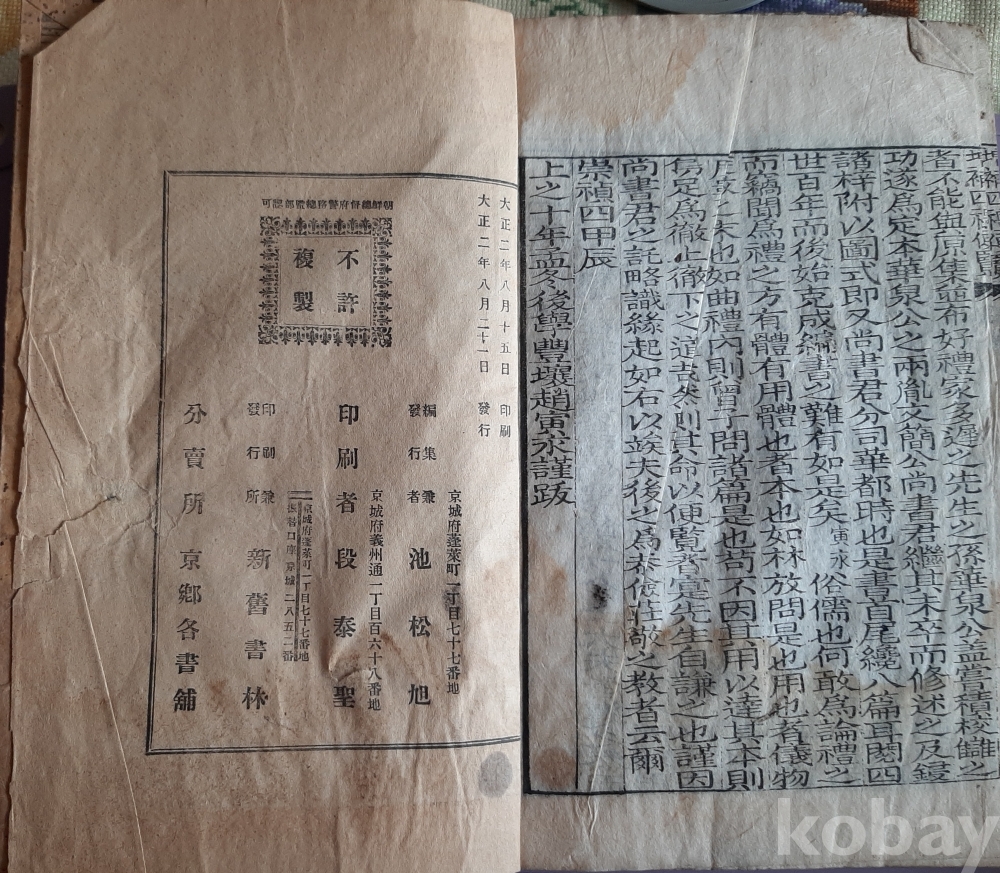 者不能與原集並布好禮家多遲之先生之孫華泉公盖嘗積校讎之
功遂爲定本華泉公之兩胤文簡公尚書君繼其未卒而修述之及鋟
諸梓附以圖式即又尚書君分司華都時也是書首尾纔八篇耳閱四
世百年而後始克成編書之難有如是矣寅永俗儒也何敢爲論禮之
而竊聞爲禮之方有體有用體也者本也如林放問是也用也者儀物
度數之末也如曲禮內則曾子問諸篇是也苟不因其用以達其本則
惡足爲徹上徹下之道哉然則其命以便覽者寔先生自謙之也謹因
尚書君之託略識緣起如右以竢夫後之爲泰儉莊敬之教者云爾
崇禎四甲辰
上之十年孟冬後學豐壤趙寅永謹跋
大正二年八月十五日 印刷
大正二年八月二十一日 發行
朝鮮總督府警務總監部認可
不許
複製
京城府蓬萊町一丁目七十七番地
編集兼
發行者 池松旭
京城府義州通一丁目百六十八番地
印刷者 段泰聖
印刷兼
發行所 新舊書林
京城府蓬萊町一丁目七十七番地
振替口座京城二八五二番
分賣所 京鄉各書舖
kobay